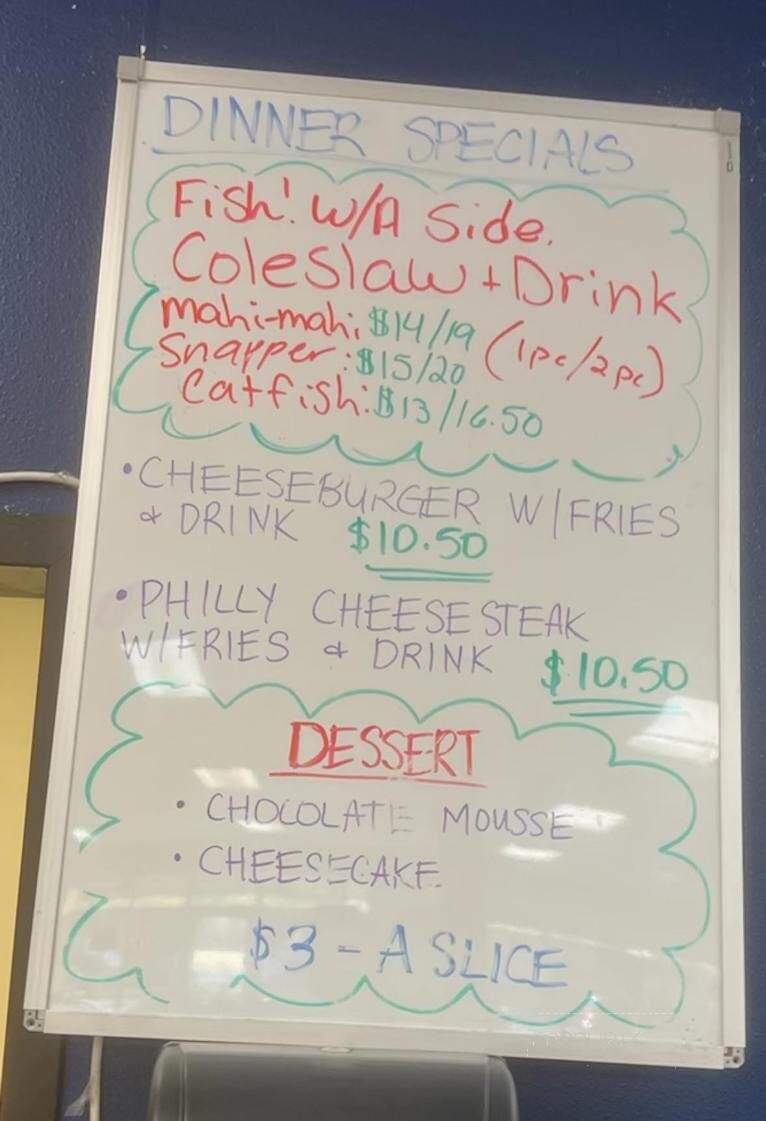 DINNER SPECIALS
Fish! W/A Side.
Coleslaw + Drink
mahi-mahi $14/19 (1pc/2pc)
Snapper: $15/20
Catfish: $13/16.50
• CHEESEBURGER W/FRIES
& DRINK $10.50
• PHILLY CHEESE STEAK
W/FRIES & DRINK $10.50
DESSERT
• CHOCOLATE MOUSSE
• CHEESECAKE
$3 - A SLICE